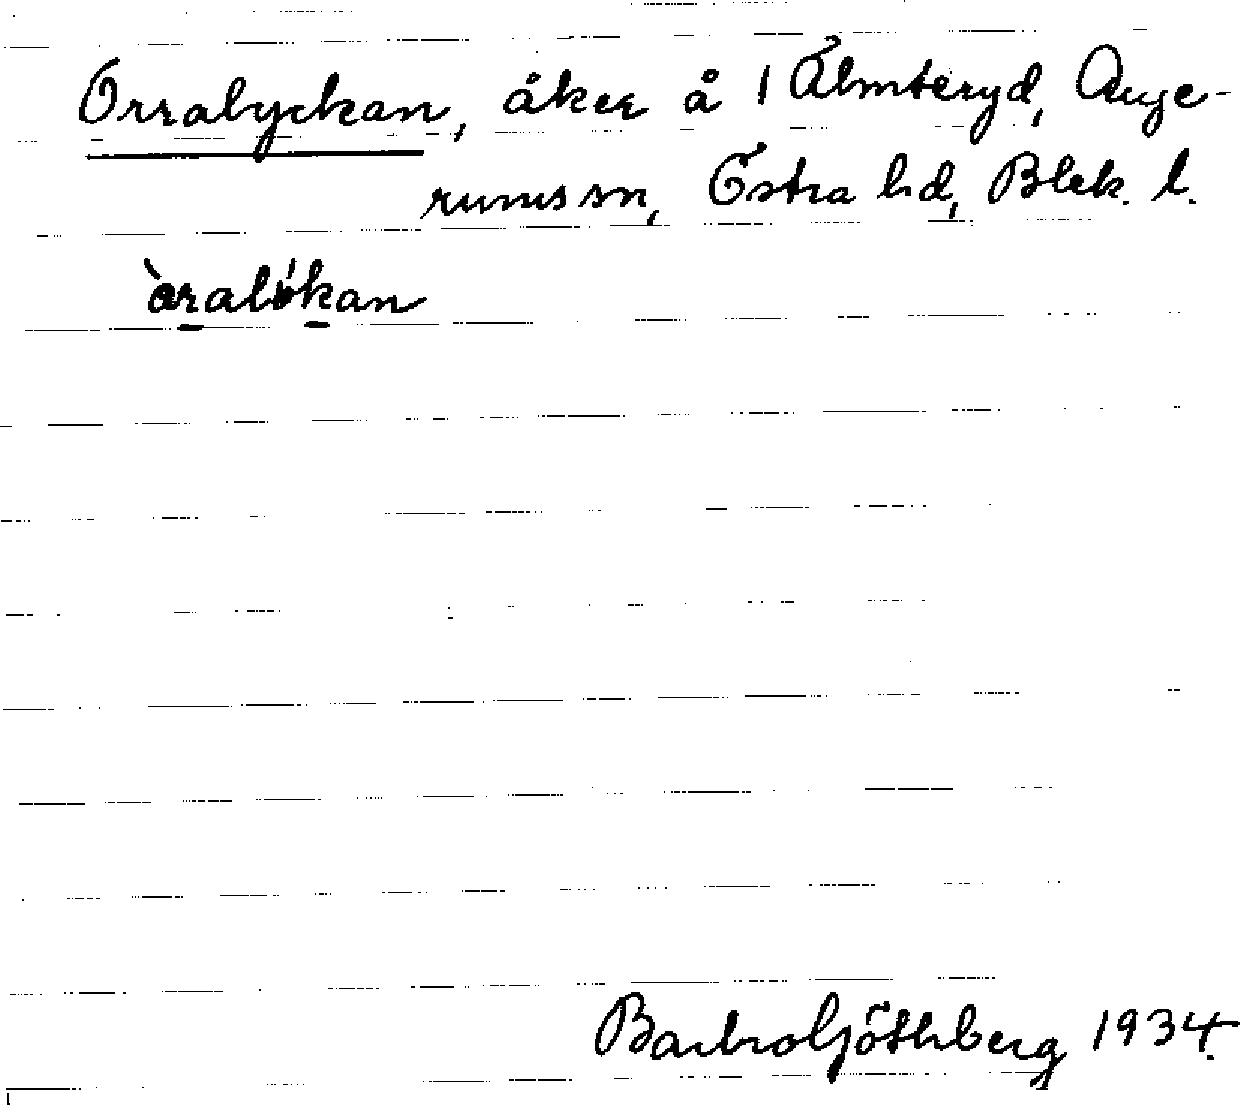 Orrabyckan, åker å 1 Älmteryd, Auge-
rums sn, Östra hd, Blek. l.
òralökan
Barbro Göthberg 1934.